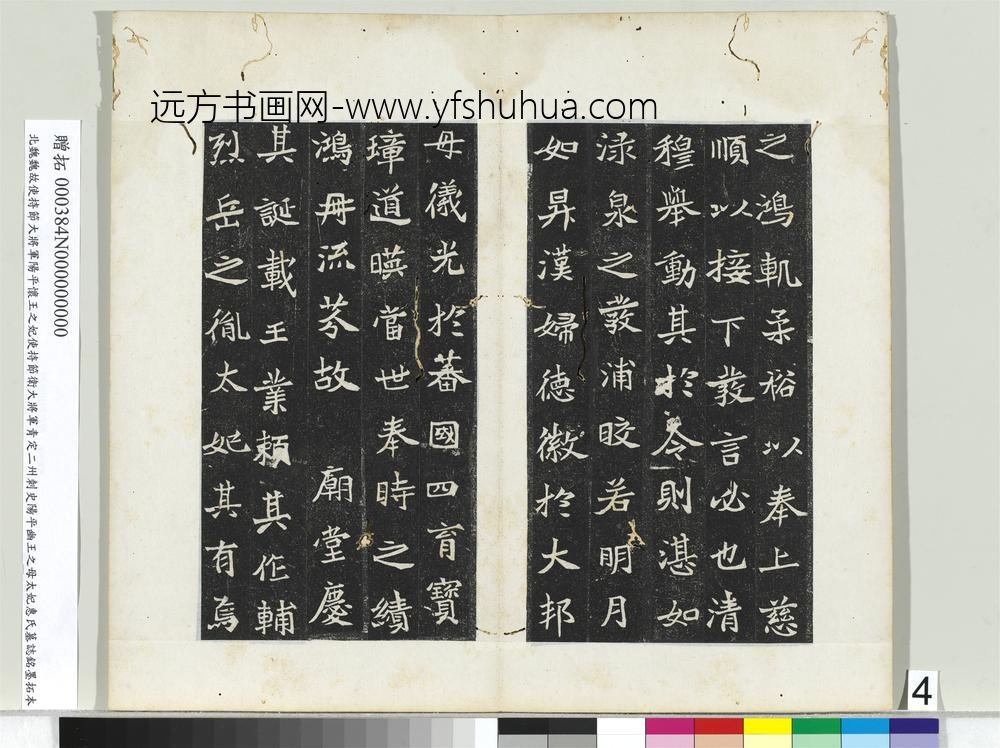 远方书画网-www.yfshuhua.com
之鴻軌柔裕以奉上慈
順以接下發言必也清
穆舉動其於令則湛如
淥泉之發浦皎若明月
如昇漢婦德徽於大邦
母儀光於蕃國四育寶
璋道暎當世奉時之績
鴻毋流芬故 廟堂慶
其誕載王業賴其作輔
烈岳之胤太妃其有焉
贈拓 000384N000000000
北魏魏故使持節大將軍陽平懷王之妃使持節衛大將軍青定二州刺史陽平幽王之母太妃惠氏墓誌銘墨拓本
4